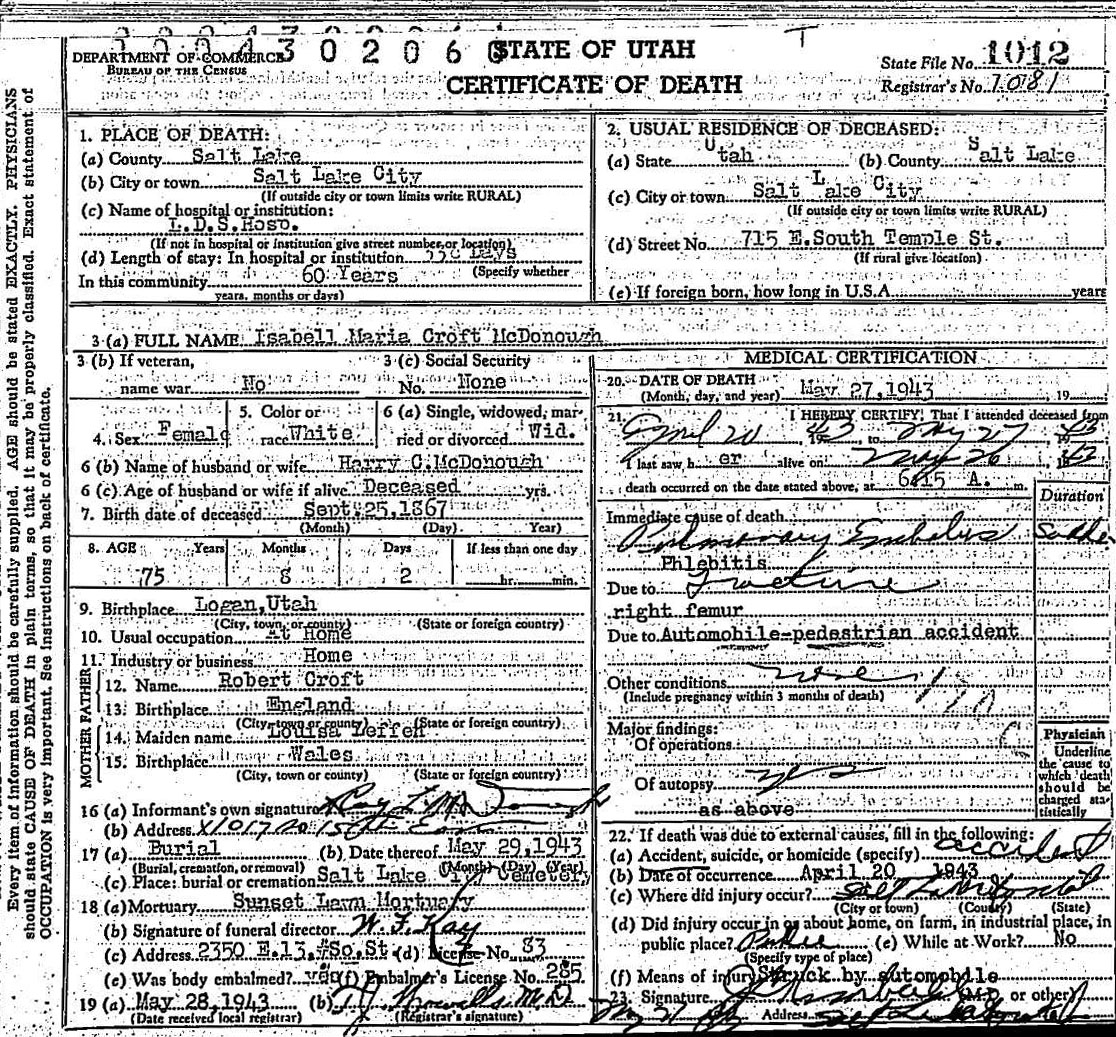 0004302060
STATE OF UTAH
CERTIFICATE OF DEATH
DEPARTMENT OF COMMERCE
BUREAU OF THE CENSUS
State File No. 1012
Registrar's No. 1081
T
Every item of information should be carefully supplied. AGE should be stated EXACTLY. PHYSICIANS
should state CAUSE OF DEATH in plain terms, so that it may be properly classified. Exact statement of
OCCUPATION is very important. See instructions on back of certificate.
1. PLACE OF DEATH:
(a) County Salt Lake
(b) City or town Salt Lake City
(If outside city or town limits write RURAL)
(c) Name of hospital or institution:
L.D.S.Hosp.
(If not in hospital or institution give street number or location)
(d) Length of stay: In hospital or institution Days
(Specify whether
In this community 60 Years
years, months or days)
2. USUAL RESIDENCE OF DECEASED:
(a) State Utah (b) County Salt Lake
(c) City or town Salt Lake City
(If outside city or town limits write RURAL)
(d) Street No. 715 E.South Temple St.
(If rural give location)
(e) If foreign born, how long in U.S.A. years
3 (a) FULL NAME Isabell Maria Croft McDonough
3 (b) If veteran,
name war No
3 (c) Social Security
No. None
4. Sex Female
5. Color or
race White
6 (a) Single, widowed, mar-
ried or divorced Wid.
6 (b) Name of husband or wife Harry C.McDonough
6 (c) Age of husband or wife if alive Deceased yrs.
7. Birth date of deceased Sept.25,1867
(Month) (Day) Year)
8. AGE Years Months Days If less than one day
75 8 2 hr. min.
9. Birthplace Logan,Utah
(City, town, or county) (State or foreign country)
10. Usual occupation At Home
11. Industry or business Home
FATHER
12. Name Robert Croft
13. Birthplace England
(City town or county) (State or foreign country)
MOTHER
14. Maiden name Louisa
15. Birthplace Wales
(City, town or county) (State or foreign country)
16 (a) Informant's own signature Ray
(b) Address
17 (a) Burial (b) Date thereof May 29,1943
(Burial, cremation, or removal) (Month) (Day) (Year)
(c) Place: burial or cremation Salt Lake City Cemetery
18 (a) Mortuary Sunset Lawn Mortuary
(b) Signature of funeral director W. F. Kay
(c) Address 2350 E.13,#So,St. (d) License No. 83
(e) Was body embalmed? yes (f) Embalmer's License No. 285
19 (a) May 28,1943 (b)
(Date received local registrar) (Registrar's signature)
MEDICAL CERTIFICATION
20. DATE OF DEATH May 27,1943
(Month, day, and year) 19
21. I HEREBY CERTIFY, That I attended deceased from
April 20 1943, to May 27 1943
I last saw h er alive on May 26 1943
death occurred on the date stated above, at 6:15 A. m.
Duration
Immediate cause of death
Pulmonary Embolus Sudden
Phlebitis
Due to Fracture
right femur
Due to Automobile-pedestrian accident
Other conditions none
(Include pregnancy within 3 months of death)
Major findings:
Of operations
Of autopsy yes
as above
Physician
Underline
the cause to
which death
should be
charged sta-
tistically
22. If death was due to external causes, fill in the following:
(a) Accident, suicide, or homicide (specify) accident
(b) Date of occurrence April 20 1943
(c) Where did injury occur?
(City or town) (County) (State)
(d) Did injury occur in or about home, on farm, in industrial place, in
public place? Public (e) While at Work? No
(Specify type of place)
(f) Means of injury Struck by automobile
23. Signature (M.D. or other)
Address